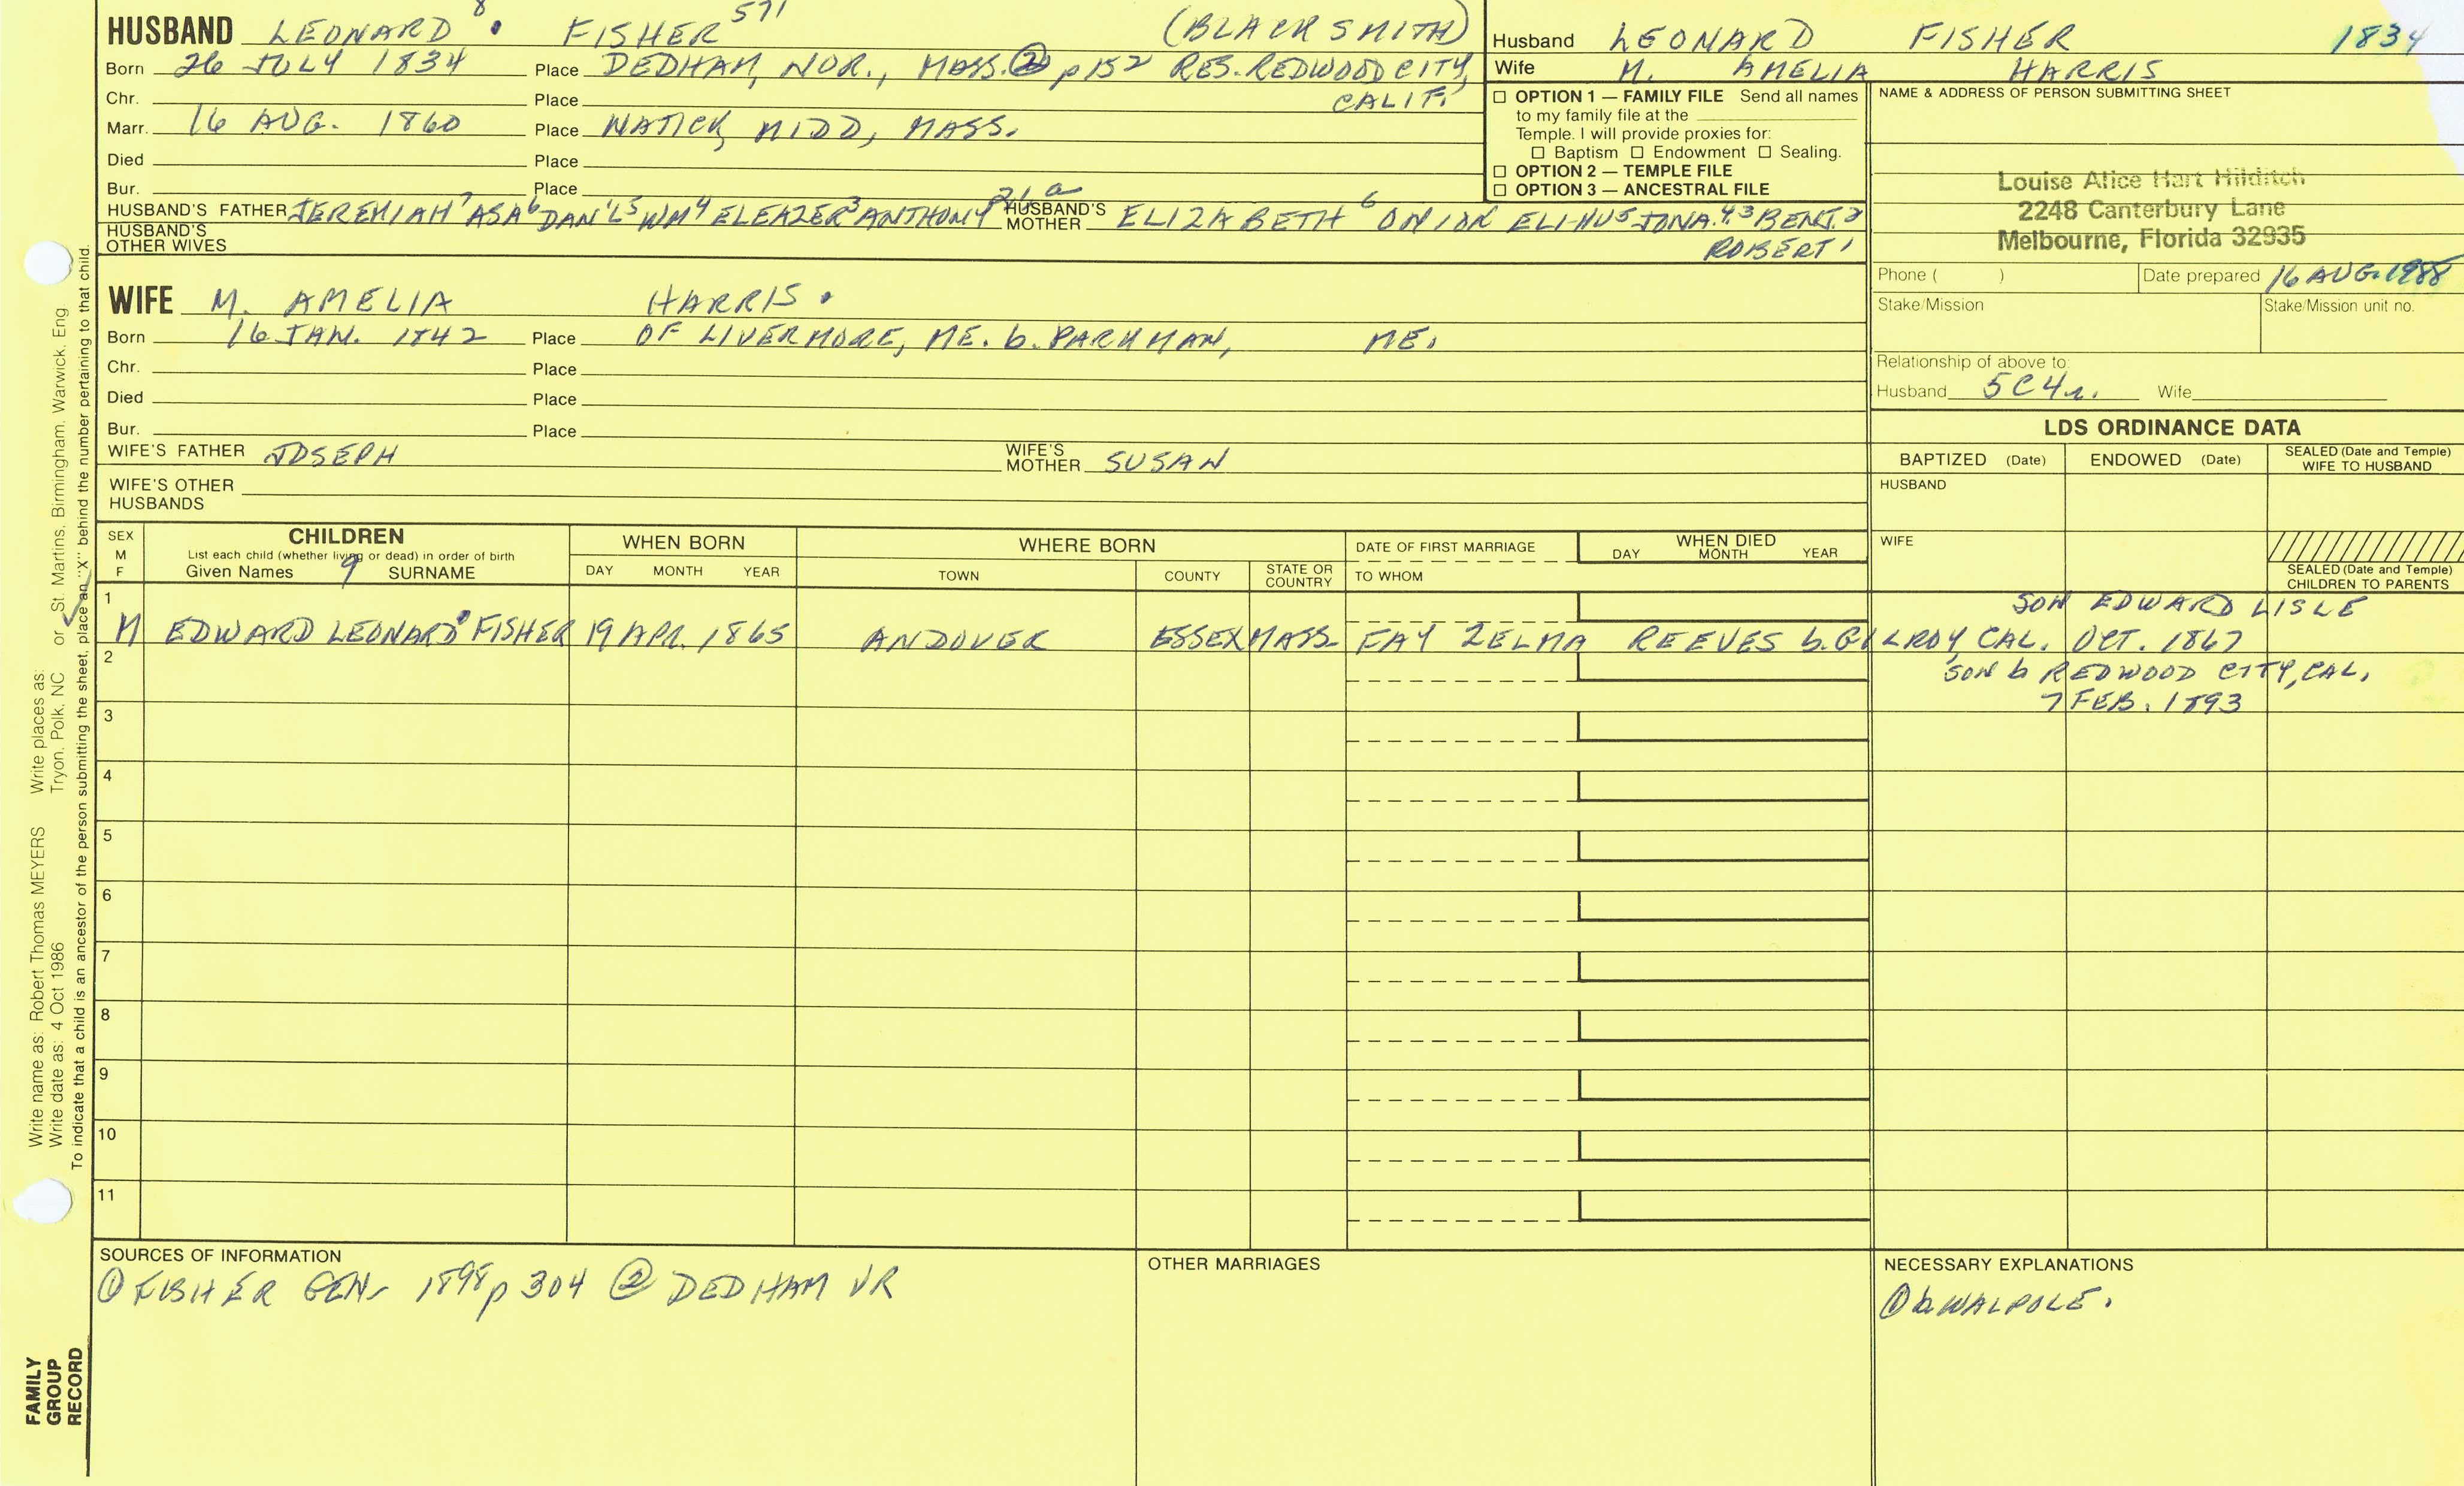 HUSBAND LEONARD 8 . FISHER 571 (BLACKSMITH)
Born 26 JULY 1834 Place DEDHAM, NOR., MASS. ② p 152 RES. REDWOOD CITY,
Chr. Place CALIF.
Marr. 16 AUG. 1860 Place NATICK, MIDD, MASS.
Died Place
Bur. Place
HUSBAND'S FATHER JEREMIAH 7 ASA 6 DAN'L 5 WM 4 ELEAZER 3 ANTHONY 2 1 a HUSBAND'S MOTHER ELIZABETH 6 ONION ELIHU 5 JONA. 4 3 BENJ. 2
HUSBAND'S OTHER WIVES ROBERT 1
Husband LEONARD FISHER 1834
Wife M. AMELIA HARRIS
☐ OPTION 1 — FAMILY FILE Send all names
to my family file at the
Temple. I will provide proxies for:
☐ Baptism ☐ Endowment ☐ Sealing.
☐ OPTION 2 — TEMPLE FILE
☐ OPTION 3 — ANCESTRAL FILE
NAME & ADDRESS OF PERSON SUBMITTING SHEET
Louise Alice Hart Hilditch
2248 Canterbury Lane
Melbourne, Florida 32935
Phone ( ) Date prepared 16 AUG. 1988
Stake/Mission Stake/Mission unit no.
Relationship of above to:
Husband 5C4r. Wife
WIFE M. AMELIA HARRIS .
Born 16 JAN. 1842 Place OF LIVERMORE, ME. b. PARKMAN, ME.
Chr. Place
Died Place
Bur. Place
WIFE'S FATHER JOSEPH WIFE'S MOTHER SUSAN
WIFE'S OTHER
HUSBANDS
LDS ORDINANCE DATA
BAPTIZED (Date) ENDOWED (Date) SEALED (Date and Temple) WIFE TO HUSBAND
HUSBAND
WIFE
SEALED (Date and Temple)
CHILDREN TO PARENTS
SEX M F
CHILDREN
List each child (whether living or dead) in order of birth
Given Names 9 SURNAME
WHEN BORN
DAY MONTH YEAR
WHERE BORN
TOWN COUNTY STATE OR COUNTRY
DATE OF FIRST MARRIAGE
TO WHOM
WHEN DIED
DAY MONTH YEAR
1 SON EDWARD LISLE
M EDWARD LEONARD FISHER 19 APR. 1865 ANDOVER ESSEX MASS. FAY ZELMA REEVES b. GILROY, CAL. OCT. 1867
2 SON b REDWOOD CITY, CAL.
7 FEB. 1893
3
4
5
6
7
8
9
10
11
SOURCES OF INFORMATION
① FISHER GEN. 1898 p 304 ② DEDHAM VR
OTHER MARRIAGES
NECESSARY EXPLANATIONS
① b. WALPOLE.
Write name as: Robert Thomas MEYERS Write places as:
Write date as: 4 Oct 1986 Tryon, Polk, NC or St. Martins, Birmingham, Warwick, Eng
To indicate that a child is an ancestor of the person submitting the sheet, place an "X" behind the number pertaining to that child.
FAMILY
GROUP
RECORD